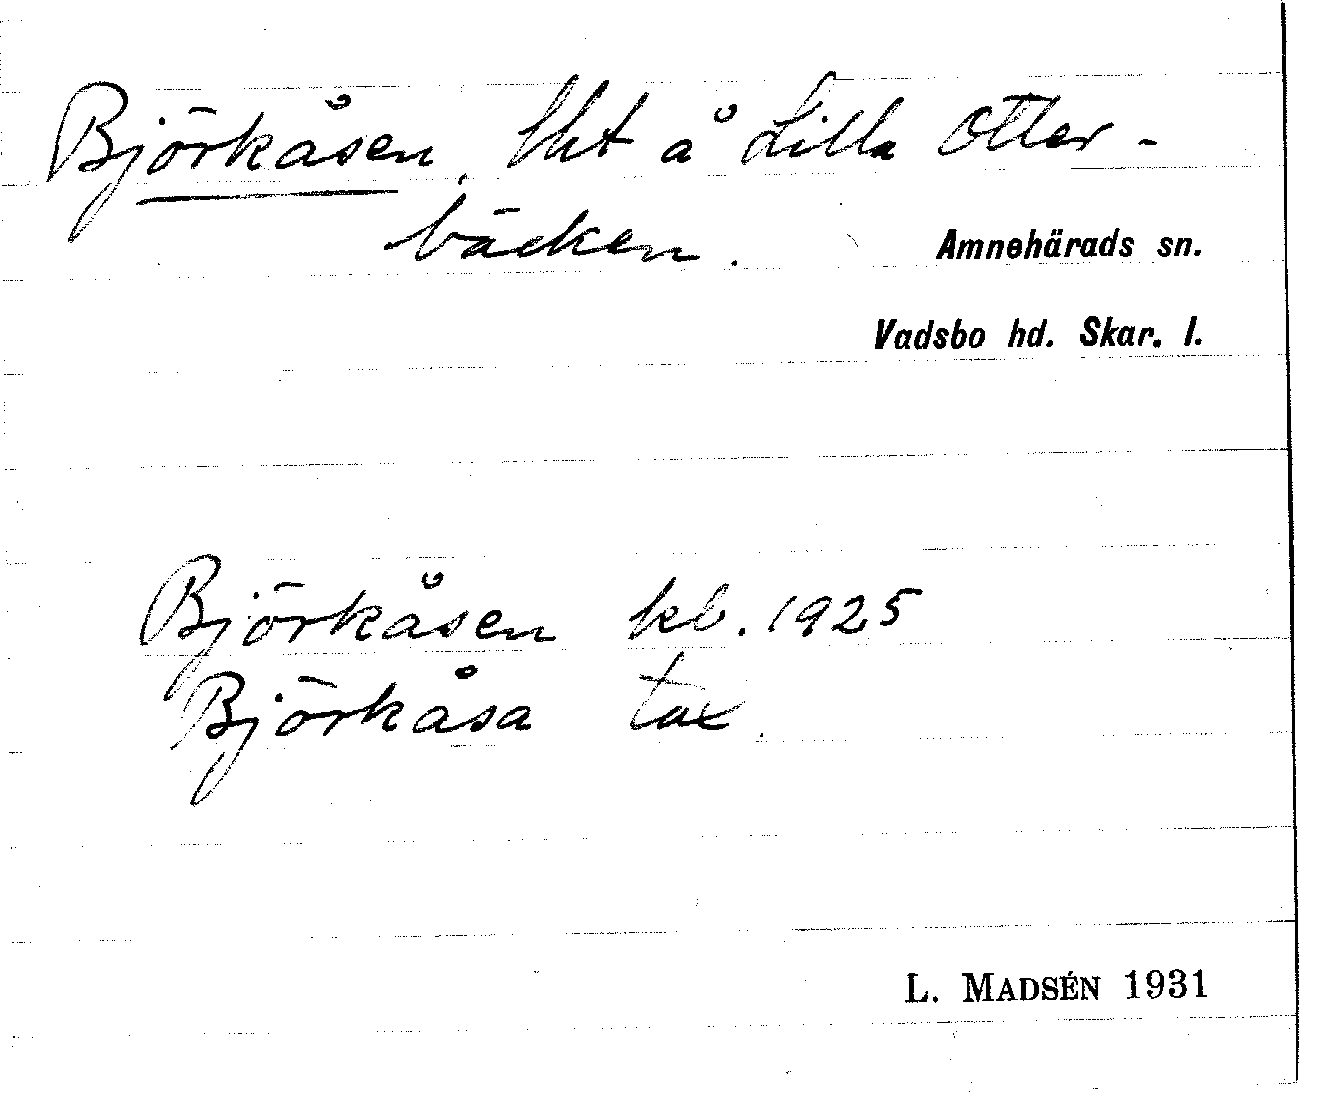 Björkåsen, lht å Lilla Otter-
bäcken.
Amnehärads sn.
Vadsbo hd. Skar. l.
Björkåsen kb. 1925
Björkåsa tax.
L. MADSÉN 1931